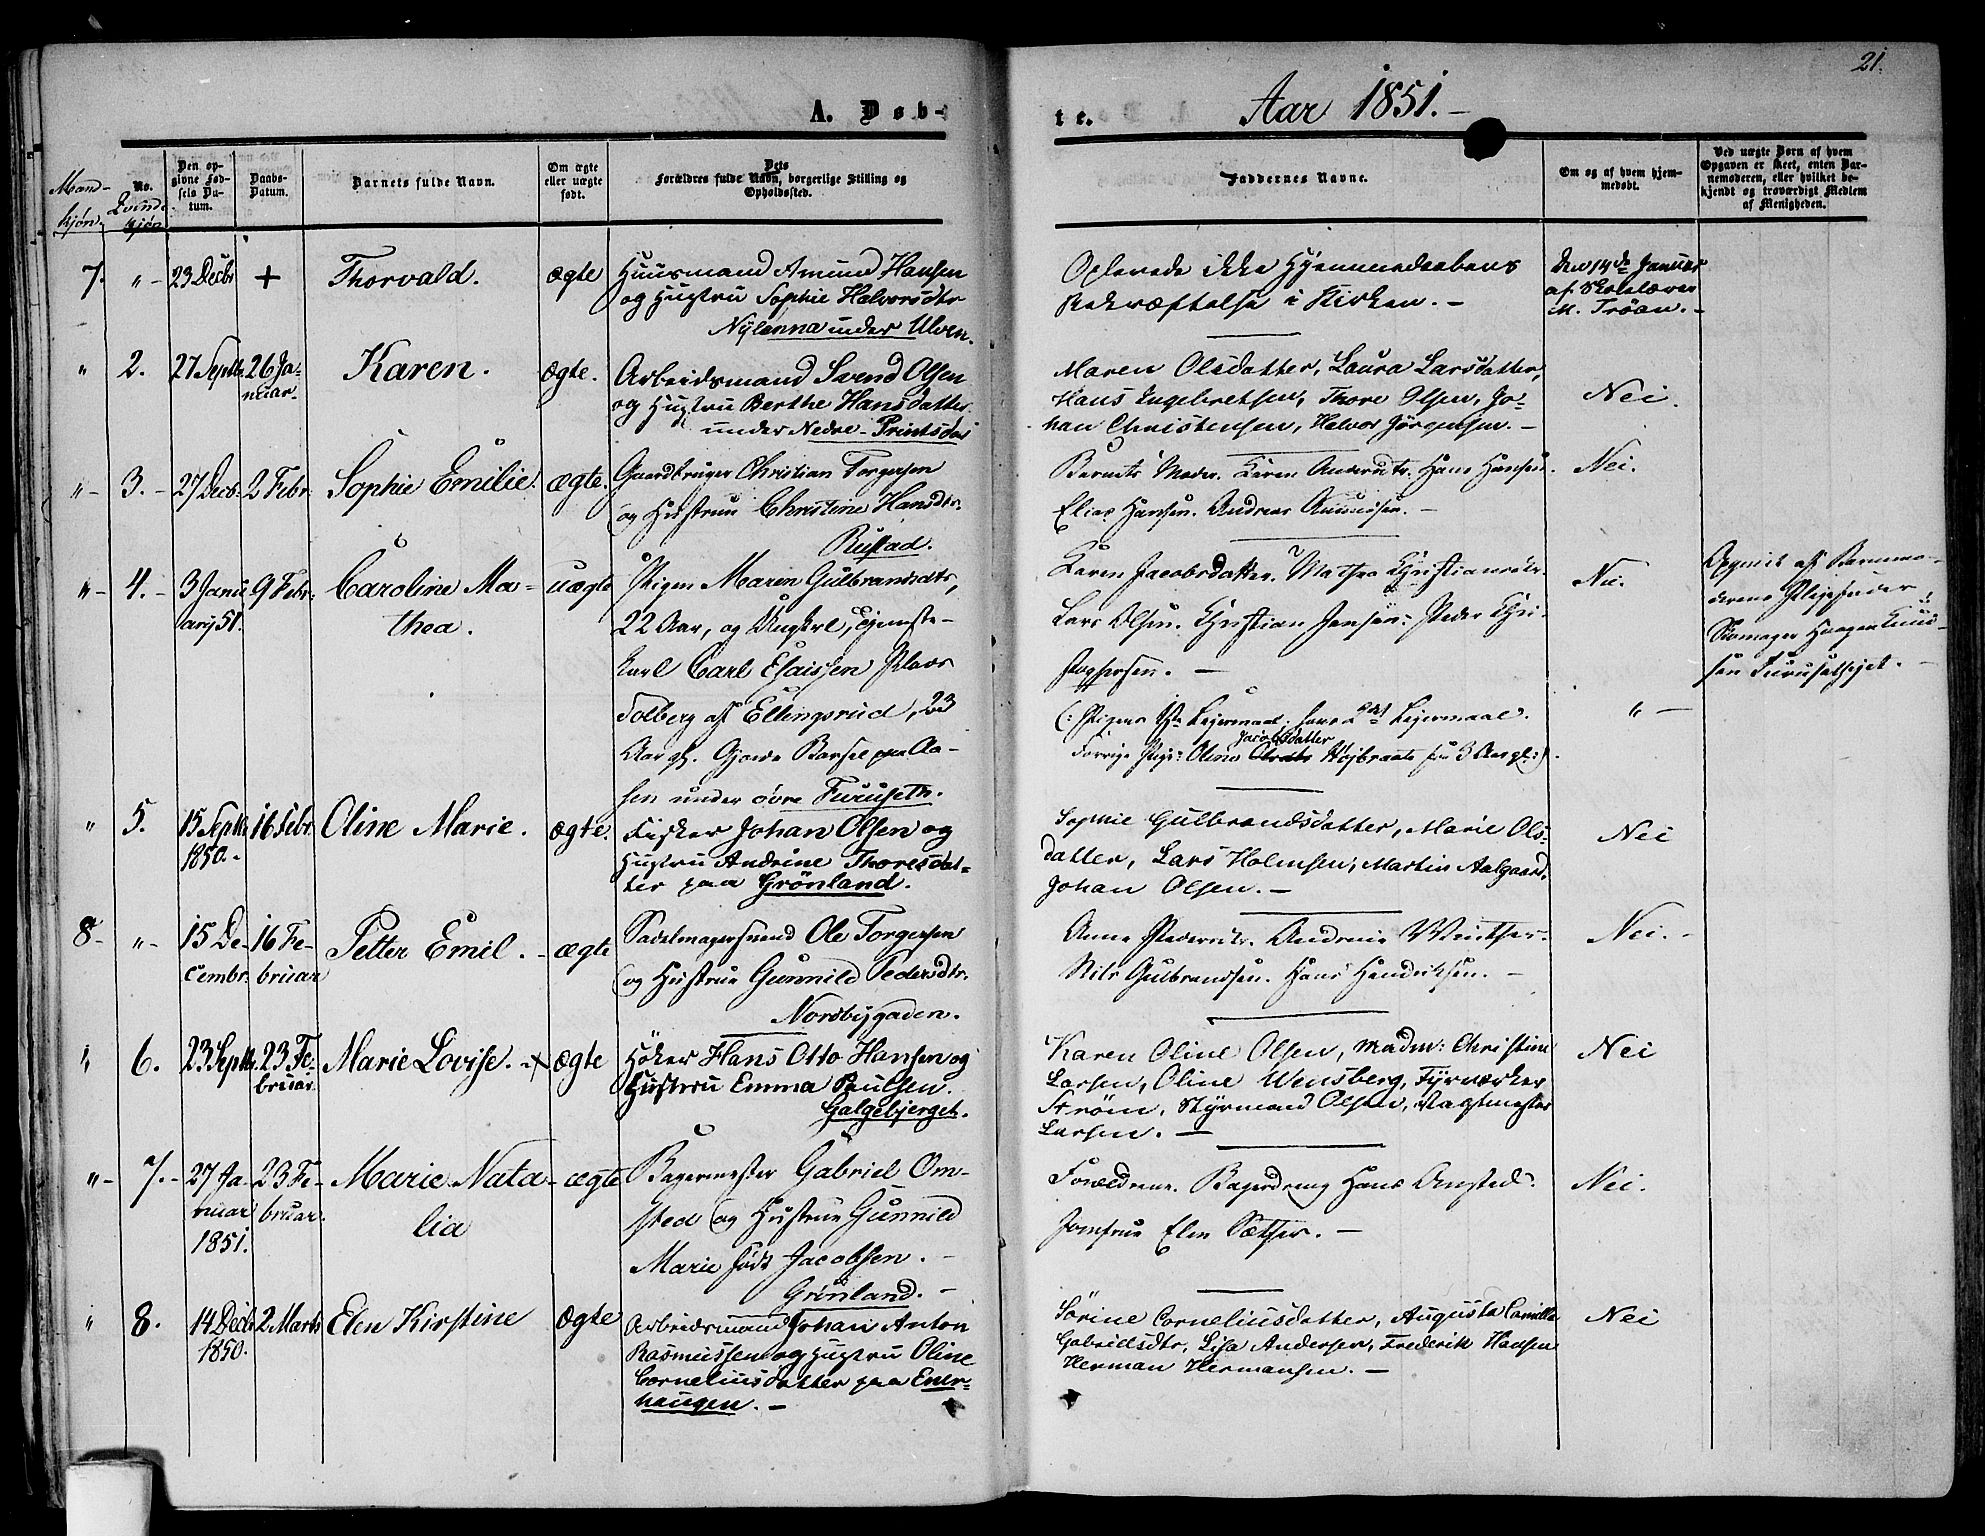 21.
A. Døb-
te.
Aar 1851.-
Mand-
kjøn.
No.
Qvinde-
kjøn
Den op-
givne Fød-
sels Da-
tum.
Daabs-
Datum.
Barnets fulde Navn.
Om ægte
eller uægte
født.
Dets
Forældres fulde Navn, borgerlige Stilling og
Opholdssted.
Faddernes Navne.
Om og af hvem hjem-
medøbt.
Ved uægte Børn af hvem
Opgaven er skeet, enten Bar-
nemoderen, eller hvilket be-
kjendt og troværdigt Medlem
af Menigheden.
7. "- 23 Decbr + Thorvald. ægte
Huusmand Amund Hansen
og Hustru Sophie Halvorsdtr
Nylænna under Ulven.
Oplevede ikke Hjemmedaabens
Bekræftelse i Kirken. -
Den 14de Januar
af Skolelærer
M. Trøan. -
" 2. 27 Septbr. 26 Ja-
nuar- Karen. ægte.
Arbeidsmand Svend Olsen
og Hustru Berthe Hansdatter
under Nedre-Printsdal
Maren Olsdatter, Laura Larsdatter,
Hans Engebretsen, Thore Olsen, Jo-
han Christensen, Halvor Jörgensen. -
Nei.
"- 3. - 27 Decb. 2 Febr. Sophie Emilie. ægte.
Gaardbruger Christian Torgersen
og Hustrue Christine Hansdtr.
Rustad.
Barnets Moder. Karen Andersdtr. Hans Hansen.
Elias Hansen. Andreas Amundsen. -
Nei.
"- 4. - 3 Janu
ary 51. 9 Febr. Caroline Ma-
thea. uægte
Pigen Maren Gulbrandsdtr,
22 Aar, og Ungkrl, Tjeneste-
karl Carl Esaissen Plads
Solberg af Ellingsrud, 23
Aar gl. Gjorde Barsel paa Aa-
sen under øvre Furuseth.
Karen Jacobsdatter. Mathea Christiansdtr.
Lars Olsen. Christian Jansen. Peder Chri-
stophersen. -
(: Pigens 1ste Leiermaal. hans 2det Leiermaal.
Forrige Pige: Oline Jacobsdatter Høibraate for 3 Aar gl:).
Nei.
" -
Opgivet af Barnemo-
derens Pleiefader,
Skomager Haagen Knud-
sen Furusetheiet. -
" 5. 15 Septbr.
1850. - 16 Febr. Oline Marie. ægte.
Fisker Johan Olsen og
Hustru Andrine Thoresdat-
ter paa Grönland.
Sophie Gulbrandsdatter, Marie Ols-
datter, Lars Holmsen, Martin Aalgaard,
Johan Olsen. -
Nei
8- "- 15 De-
cembr. 16 Fe-
bruar Petter Emil. - ægte
Sadelmagersvend Ole Torgersen
og Hustrue Gunnild Pedersdtr.
Nordbygaden.
Anne Pedersdtr. Andrine Winther.
Nils Gulbrandsen. Hans Hendriksen. -
Nei. -
" 6. 23 Septbr. 23 Fe-
bruar. Marie Lovise. - × ægte
Høker Hans Otto Hansen og
Hustru Emma Paulsen.
Galgebjerget.
Karen Oline Olsen, Madm: Christine
Larsen, Oline Wensberg, Fyrverker
Strøm, Styrmand Olsen, Vagtmester
Larsen. -
Nei
"- 7. - 27 Ja-
nuar
1851. 23 Fe-
bruar. Marie Nata-
lia ægte
Bagermester Gabriel Om-
sted og Hustrue Gunnild
Marie født Jacobsen. -
Grönland. -
Forældrene. Bagerdreng Hans Omsted.
Jomfrue Elen Sæther. -
Nei.
" 8. 14 Decbr
1850. 2 Marts Elen Kirstine ægte
Arbeidsmand Johan Anton
Rasmussen og Hustru Oline
Corneliusdatter paa Ener-
haugen. -
Sörine Corneliusdatter, Augusta Camilla
Gabrielsdtr, Lisa Andersen, Frederik Hansen
Herman Hermansen. -
Nei